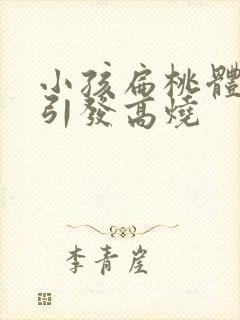 小孩扁桃體
引發高燒
李青崖